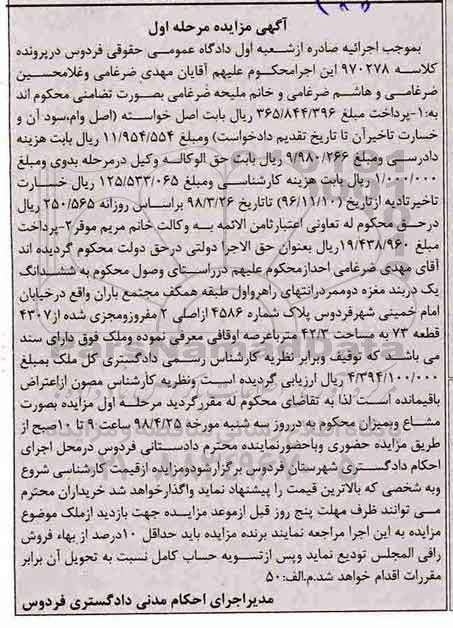 (۹۸)
آگهی مزایده مرحله اول
بموجب اجرائیه صادره ازشعبه اول دادگاه عمومی حقوقی فردوس درپرونده
کلاسه ۹۷۰۲۷۸ این اجرامحکوم علیهم آقایان مهدی ضرغامی وغلامحسین
ضرغامی و هاشم ضرغامی و خانم ملیحه ضرغامی بصورت تضامنی محکوم اند
به:۱-پرداخت مبلغ ۳۶۵/۸۴۴/۳۹۶ ریال بابت اصل خواسته (اصل وام،سود آن و
خسارت تاخیرآن تا تاریخ تقدیم دادخواست) ومبلغ ۱۱/۹۵۴/۵۵۴ ریال بابت هزینه
دادرسی ومبلغ ۹/۹۸۰/۲۶۶ ریال بابت حق الوکاله وکیل درمرحله بدوی ومبلغ
۱/۰۰۰/۰۰۰ ریال بابت هزینه کارشناسی ومبلغ ۱۲۵/۵۳۳/۰۶۵ ریال خسارت
تاخیرتادیه ازتاریخ (۹۶/۱۱/۱۰) تاتاریخ ۹۸/۳/۲۶ براساس روزانه ۲۵۰/۵۶۵ ریال
درحق محکوم له تعاونی اعتبارثامن الائمه به وکالت خانم مریم موقر۲-پرداخت
مبلغ ۱۹/۴۳۸/۹۶۰ریال بعنوان حق الاجرا دولتی درحق دولت محکوم گردیده اند
آقای مهدی ضرغامی احدازمحکوم علیهم درراستای وصول محکوم به ششدانگ
یک دربند مغزه دوممردرانتهای راهرواول طبقه همکف مجتمع باران واقع درخیابان
امام خمینی شهرفردوس پلاک شماره ۴۵۸۶ ازاصلی ۲ مفروزومجزی شده از۴۳۰۷
قطعه ۷۳ به مساحت ۴۲/۳ مترباعرصه اوقافی معرفی نموده وملک فوق دارای سند
می باشد که توقیف وبرابر نظریه کارشناس رسمی دادگستری کل ملک بمبلغ
۴/۳۹۴/۱۰۰/۰۰۰ ریال ارزیابی گردیده است ونظریه کارشناس مصون ازاعتراض
باقیمانده است لذا به تقاضای محکوم له مقررگردید مرحله اول مزایده بصورت
مشاع وبمیزان محکوم به درروز سه شنبه مورخه ۹۸/۴/۲۵ ساعت ۹ تا ۱۰صبح از
طریق مزایده حضوری وباحضورنماینده محترم دادستانی فردوس درمحل اجرای
احکام دادگستری شهرستان فردوس برگزارشودومزایده ازقیمت کارشناسی شروع
وبه شخصی که بالاترین قیمت را پیشنهاد نماید واگذارخواهد شد خریداران محترم
می توانند ظرف مهلت پنج روز قبل ازموعد مزایده جهت بازدید ازملک موضوع
مزایده به این اجرا مراجعه نمایند برنده مزایده باید حداقل ۱۰درصد از بهاء فروش
رافی المجلس تودیع نماید وپس ازتسویه حساب کامل نسبت به تحویل آن برابر
مقررات اقدام خواهد شد.م.الف:۵۰
مدیراجرای احکام مدنی دادگستری فردوس